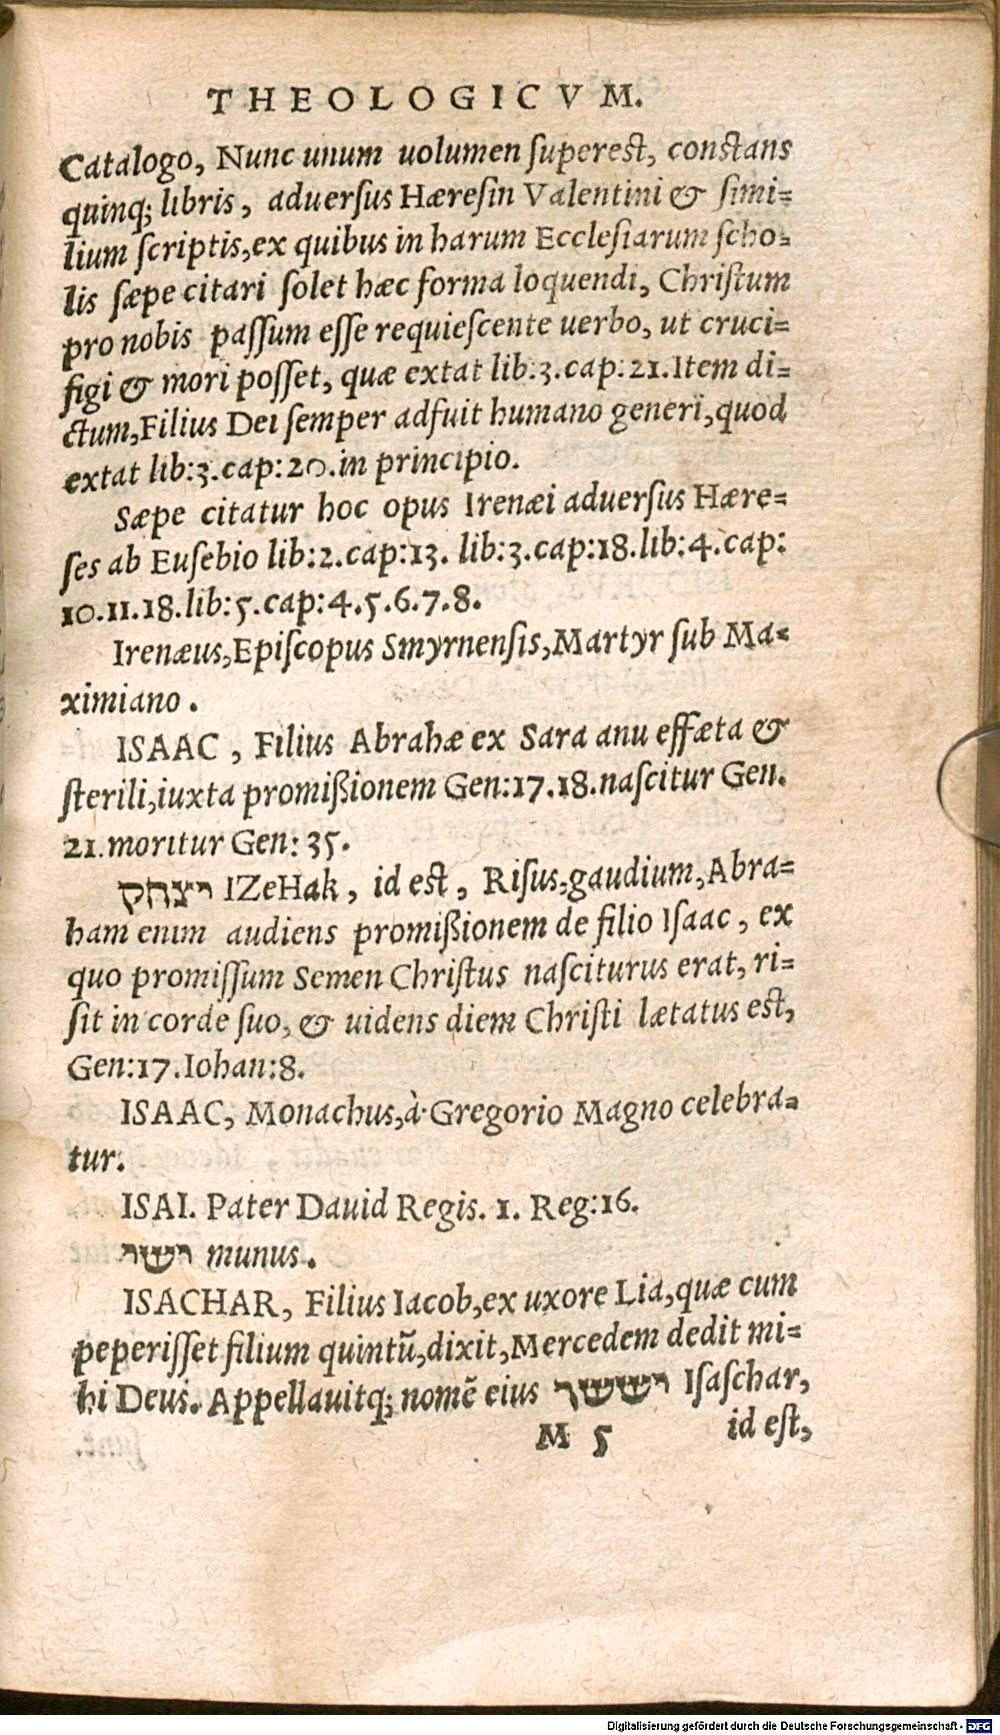 THEOLOGICVM.
Catalogo, Nunc unum uolumen ſupereſt, conſtans
quinq; libris, aduerſus Hæreſin Valentini & ſimi=
lium ſcriptis,ex quibus in harum Eccleſiarum ſcho=
lis ſæpe citari ſolet hæc forma loquendi, Chriſtum
pro nobis paſſum eſſe requieſcente uerbo, ut cruci=
figi & mori poſſet, quæ extat lib:3.cap:21.Item di=
ctum,Filius Dei ſemper adfuit humano generi,quod
extat lib:3.cap:20.in principio.
Sæpe citatur hoc opus Irenæi aduerſus Hære=
ſes ab Euſebio lib:2.cap:13. lib:3.cap:18.lib:4.cap:
10.11.18.lib:5.cap:4.5.6.7.8.
Irenæus,Epiſcopus Smyrnenſis,Martyr ſub Ma=
ximiano.
ISAAC, Filius Abrahæ ex Sara anu effæta &
ſterili,iuxta promißionem Gen:17.18.naſcitur Gen.
21.moritur Gen: 35.
יצחק IZeHak, id eſt, Riſus,gaudium,Abra=
ham enim audiens promißionem de filio Iſaac, ex
quo promiſſum Semen Chriſtus naſciturus erat, ri=
ſit in corde ſuo, & uidens diem Chriſti lætatus eſt,
Gen:17.Iohan:8.
ISAAC, Monachus,à Gregorio Magno celebra=
tur.
ISAI. Pater Dauid Regis. 1. Reg:16.
ישר munus.
ISACHAR, Filius Iacob,ex uxore Lia,quæ cum
peperiſſet filium quintũ,dixit,Mercedem dedit mi=
hi Deus. Appellauitq; nomẽ eius יששר Iſaſchar,
M 5 id eſt,
Digitalisierung gefördert durch die Deutsche Forschungsgemeinschaft - DFG